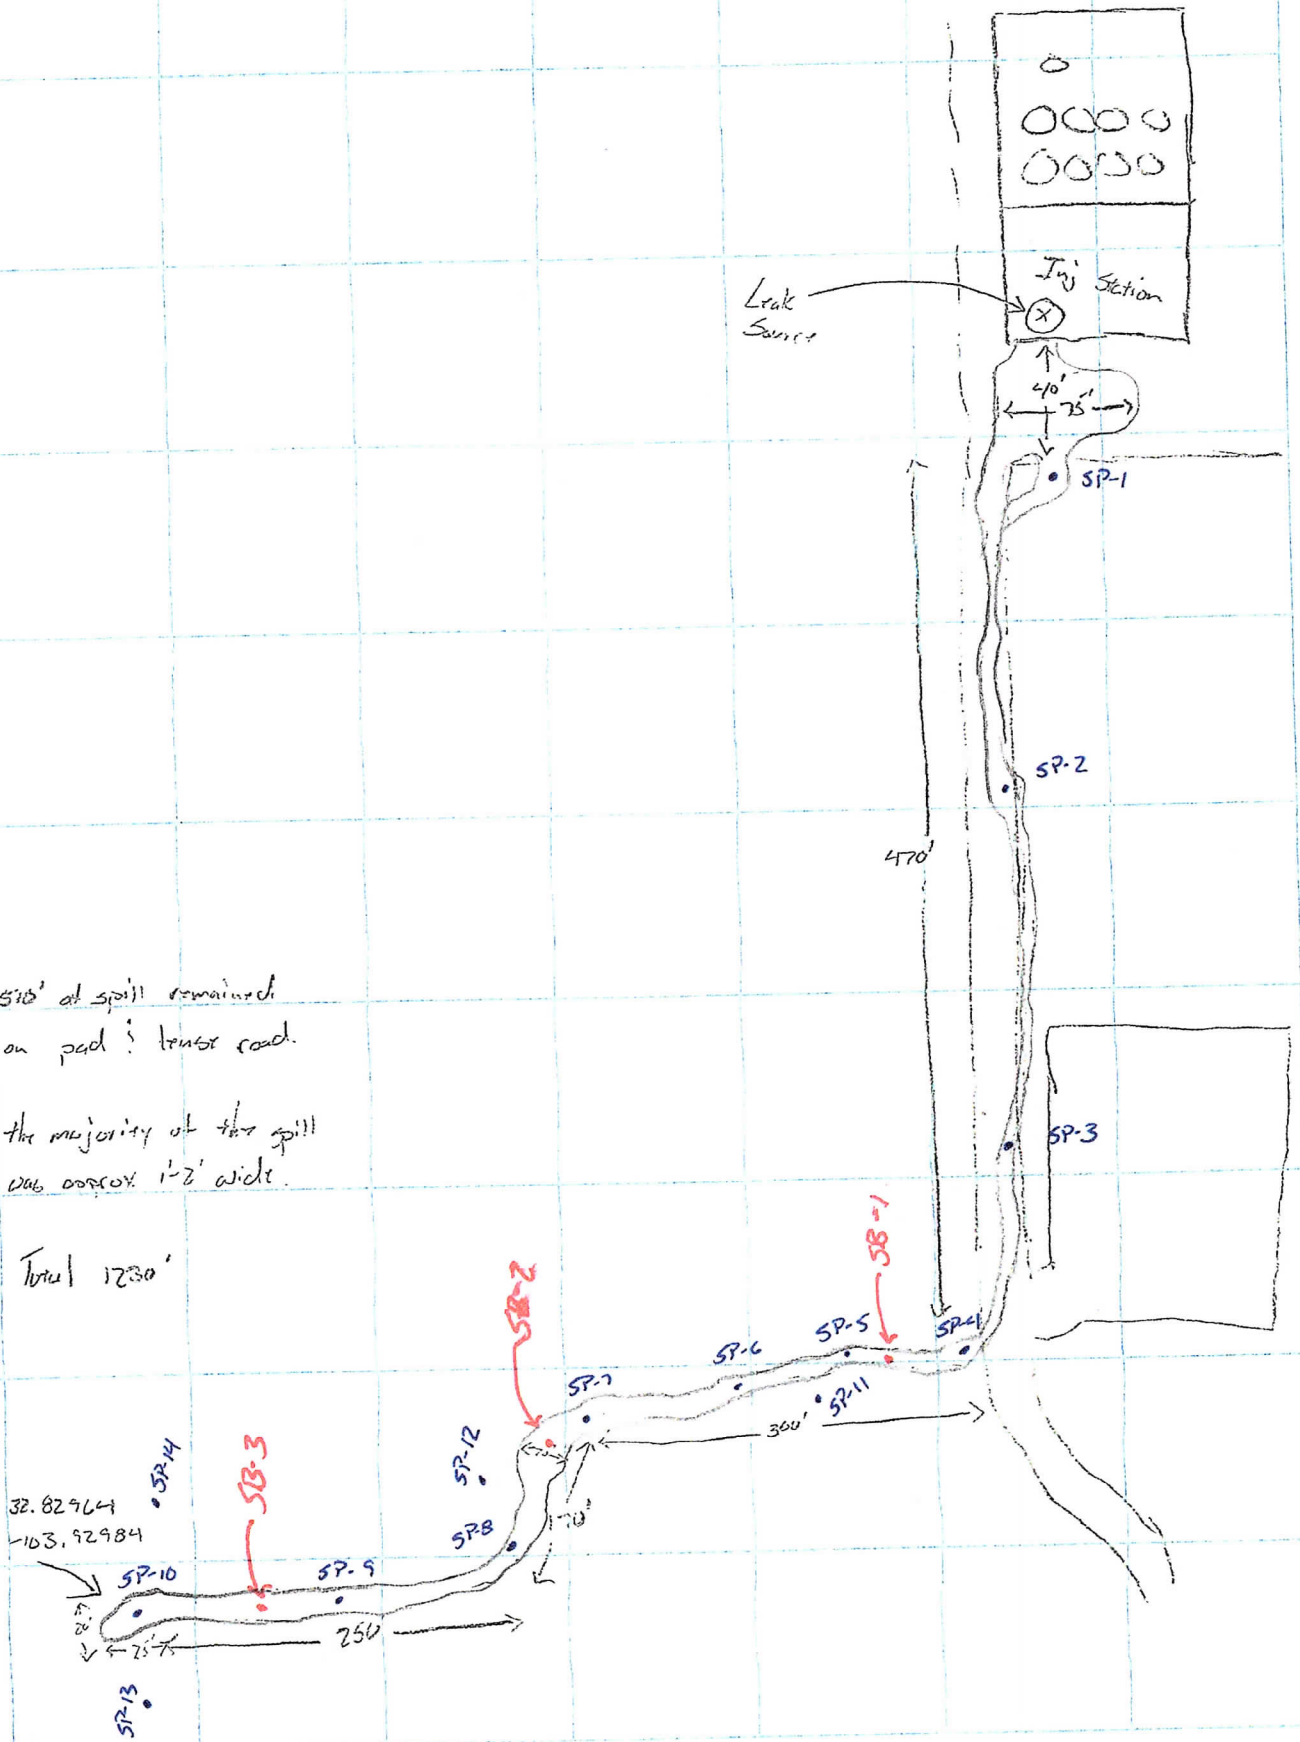 Inj Station
Leak
Source
40'
75'
SP-1
SP-2
470'
510' of spill remained
on pad & lease road.
SP-3
the majority of the spill
was approx. 1'-2' wide.
SB-1
Total 1230'
SB-2
SP-4
SP-5
SP-6
SP-7
SP-11
300'
SP-12
SP-14
SB-3
32.82964
-103.92984
70'
SP-8
SP-9
SP-10
20'
25'
250
SP-13